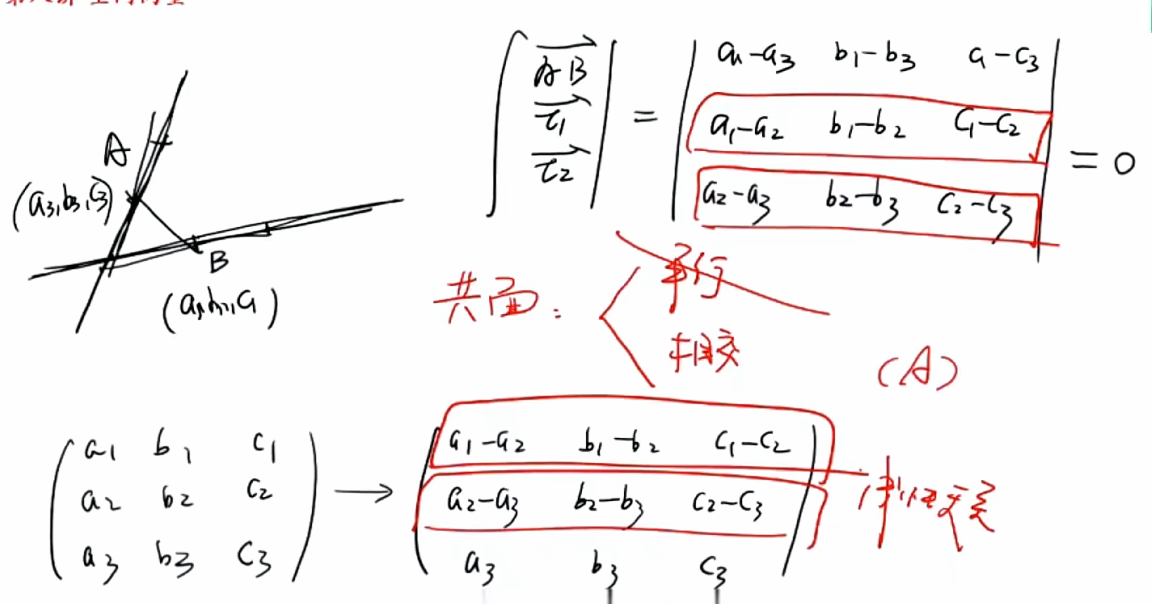 A
(a₃,b₃,c₃)
B
(a₁,b₁,c₁)
| AB→ |
| τ₁→ |
| τ₂→ |
=
| a₁-a₃ b₁-b₃ c₁-c₃ |
| a₁-a₂ b₁-b₂ c₁-c₂ |
| a₂-a₃ b₂-b₃ c₂-c₃ |
= 0
共面:
平行
相交
(A)
( a₁ b₁ c₁ )
( a₂ b₂ c₂ )
( a₃ b₃ c₃ )
→
( a₁-a₂ b₁-b₂ c₁-c₂ )
( a₂-a₃ b₂-b₃ c₂-c₃ )
( a₃ b₃ c₃ )